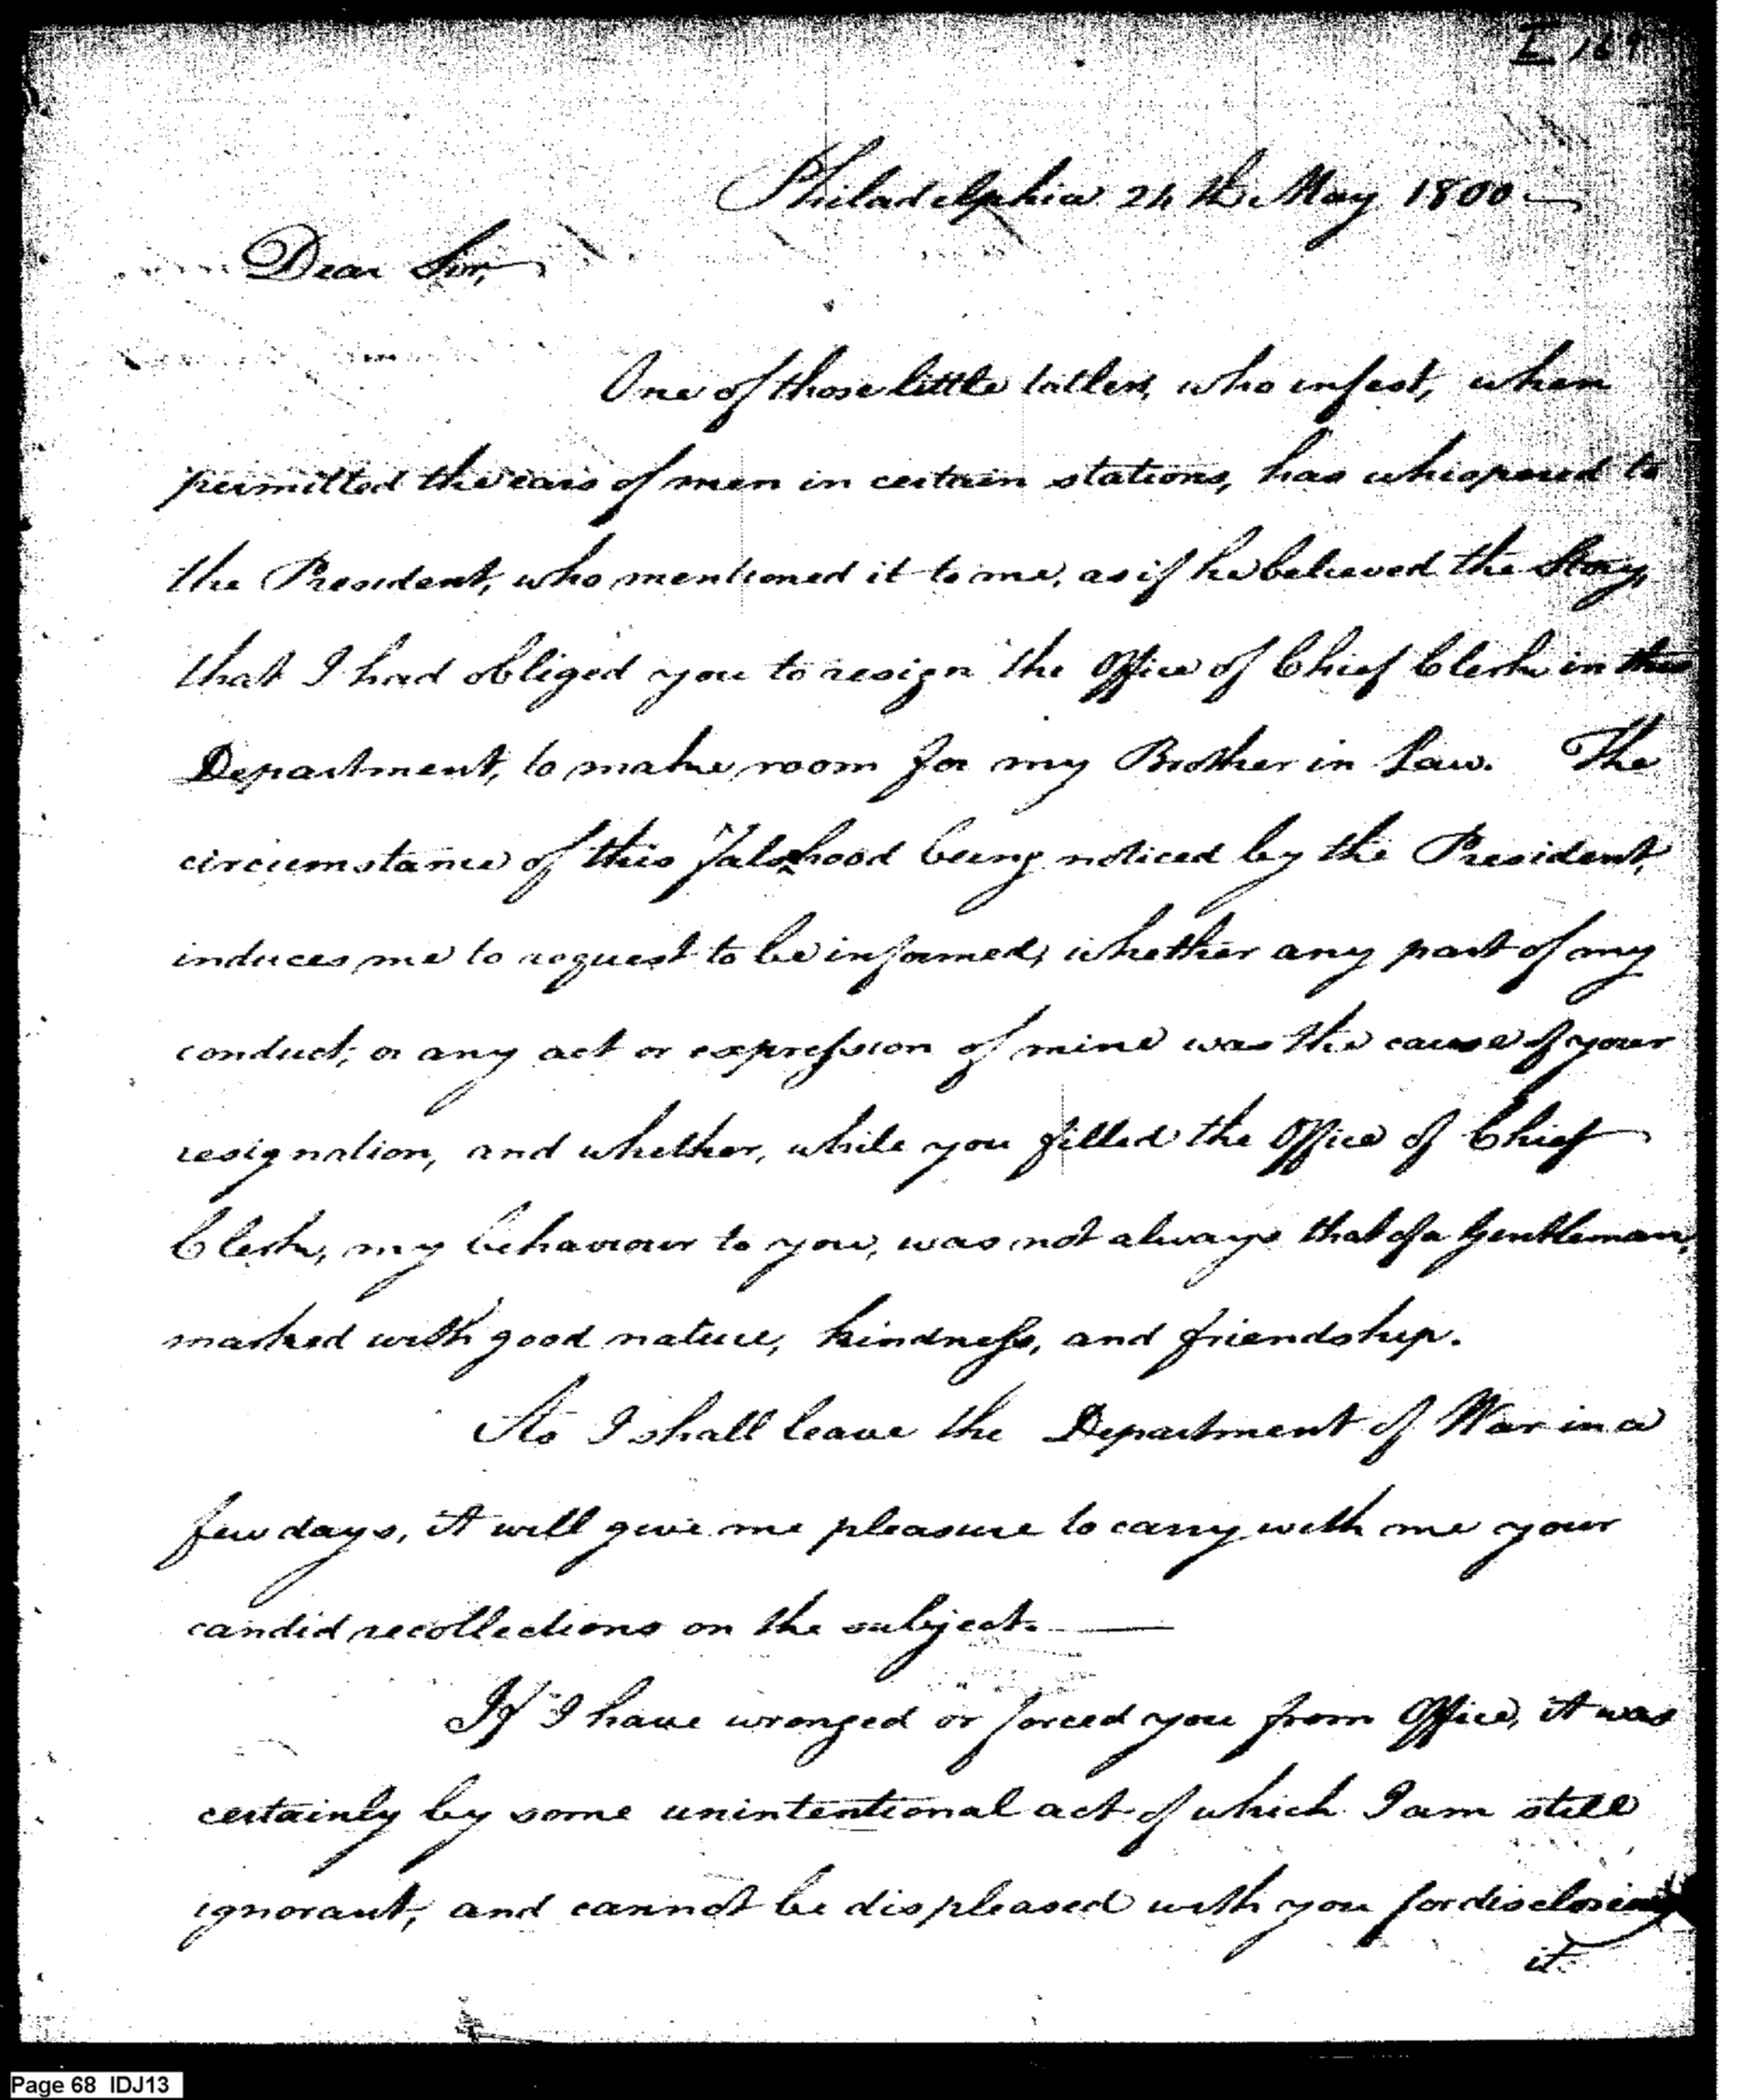 Philadelphia 24th May 1800
Dear Sir,
One of those little tatlers, who infest, when
permitted the ears of men in certain stations, has whispered to
the President, who mentioned it to me, as if he believed the Story,
that I had obliged you to resign the Office of Chief Clerk in this
Department, to make room for my Brother in Law. The
circumstance of this Falsehood being noticed by the President,
induces me to request to be informed, whether any part of my
conduct, or any act or expression of mine was the cause of your
resignation, and whether, while you filled the Office of Chief
Clerk, my behaviour to you, was not always that of a Gentleman,
marked with good nature, kindness, and friendship.
As I shall leave the Department of War in a
few days, it will give me pleasure to carry with me your
candid recollections on the subject.
If I have wronged or forced you from Office, it was
certainly by some unintentional act of which I am still
ignorant, and cannot be displeased with you for disclosing
it.
Page 68 IDJ13